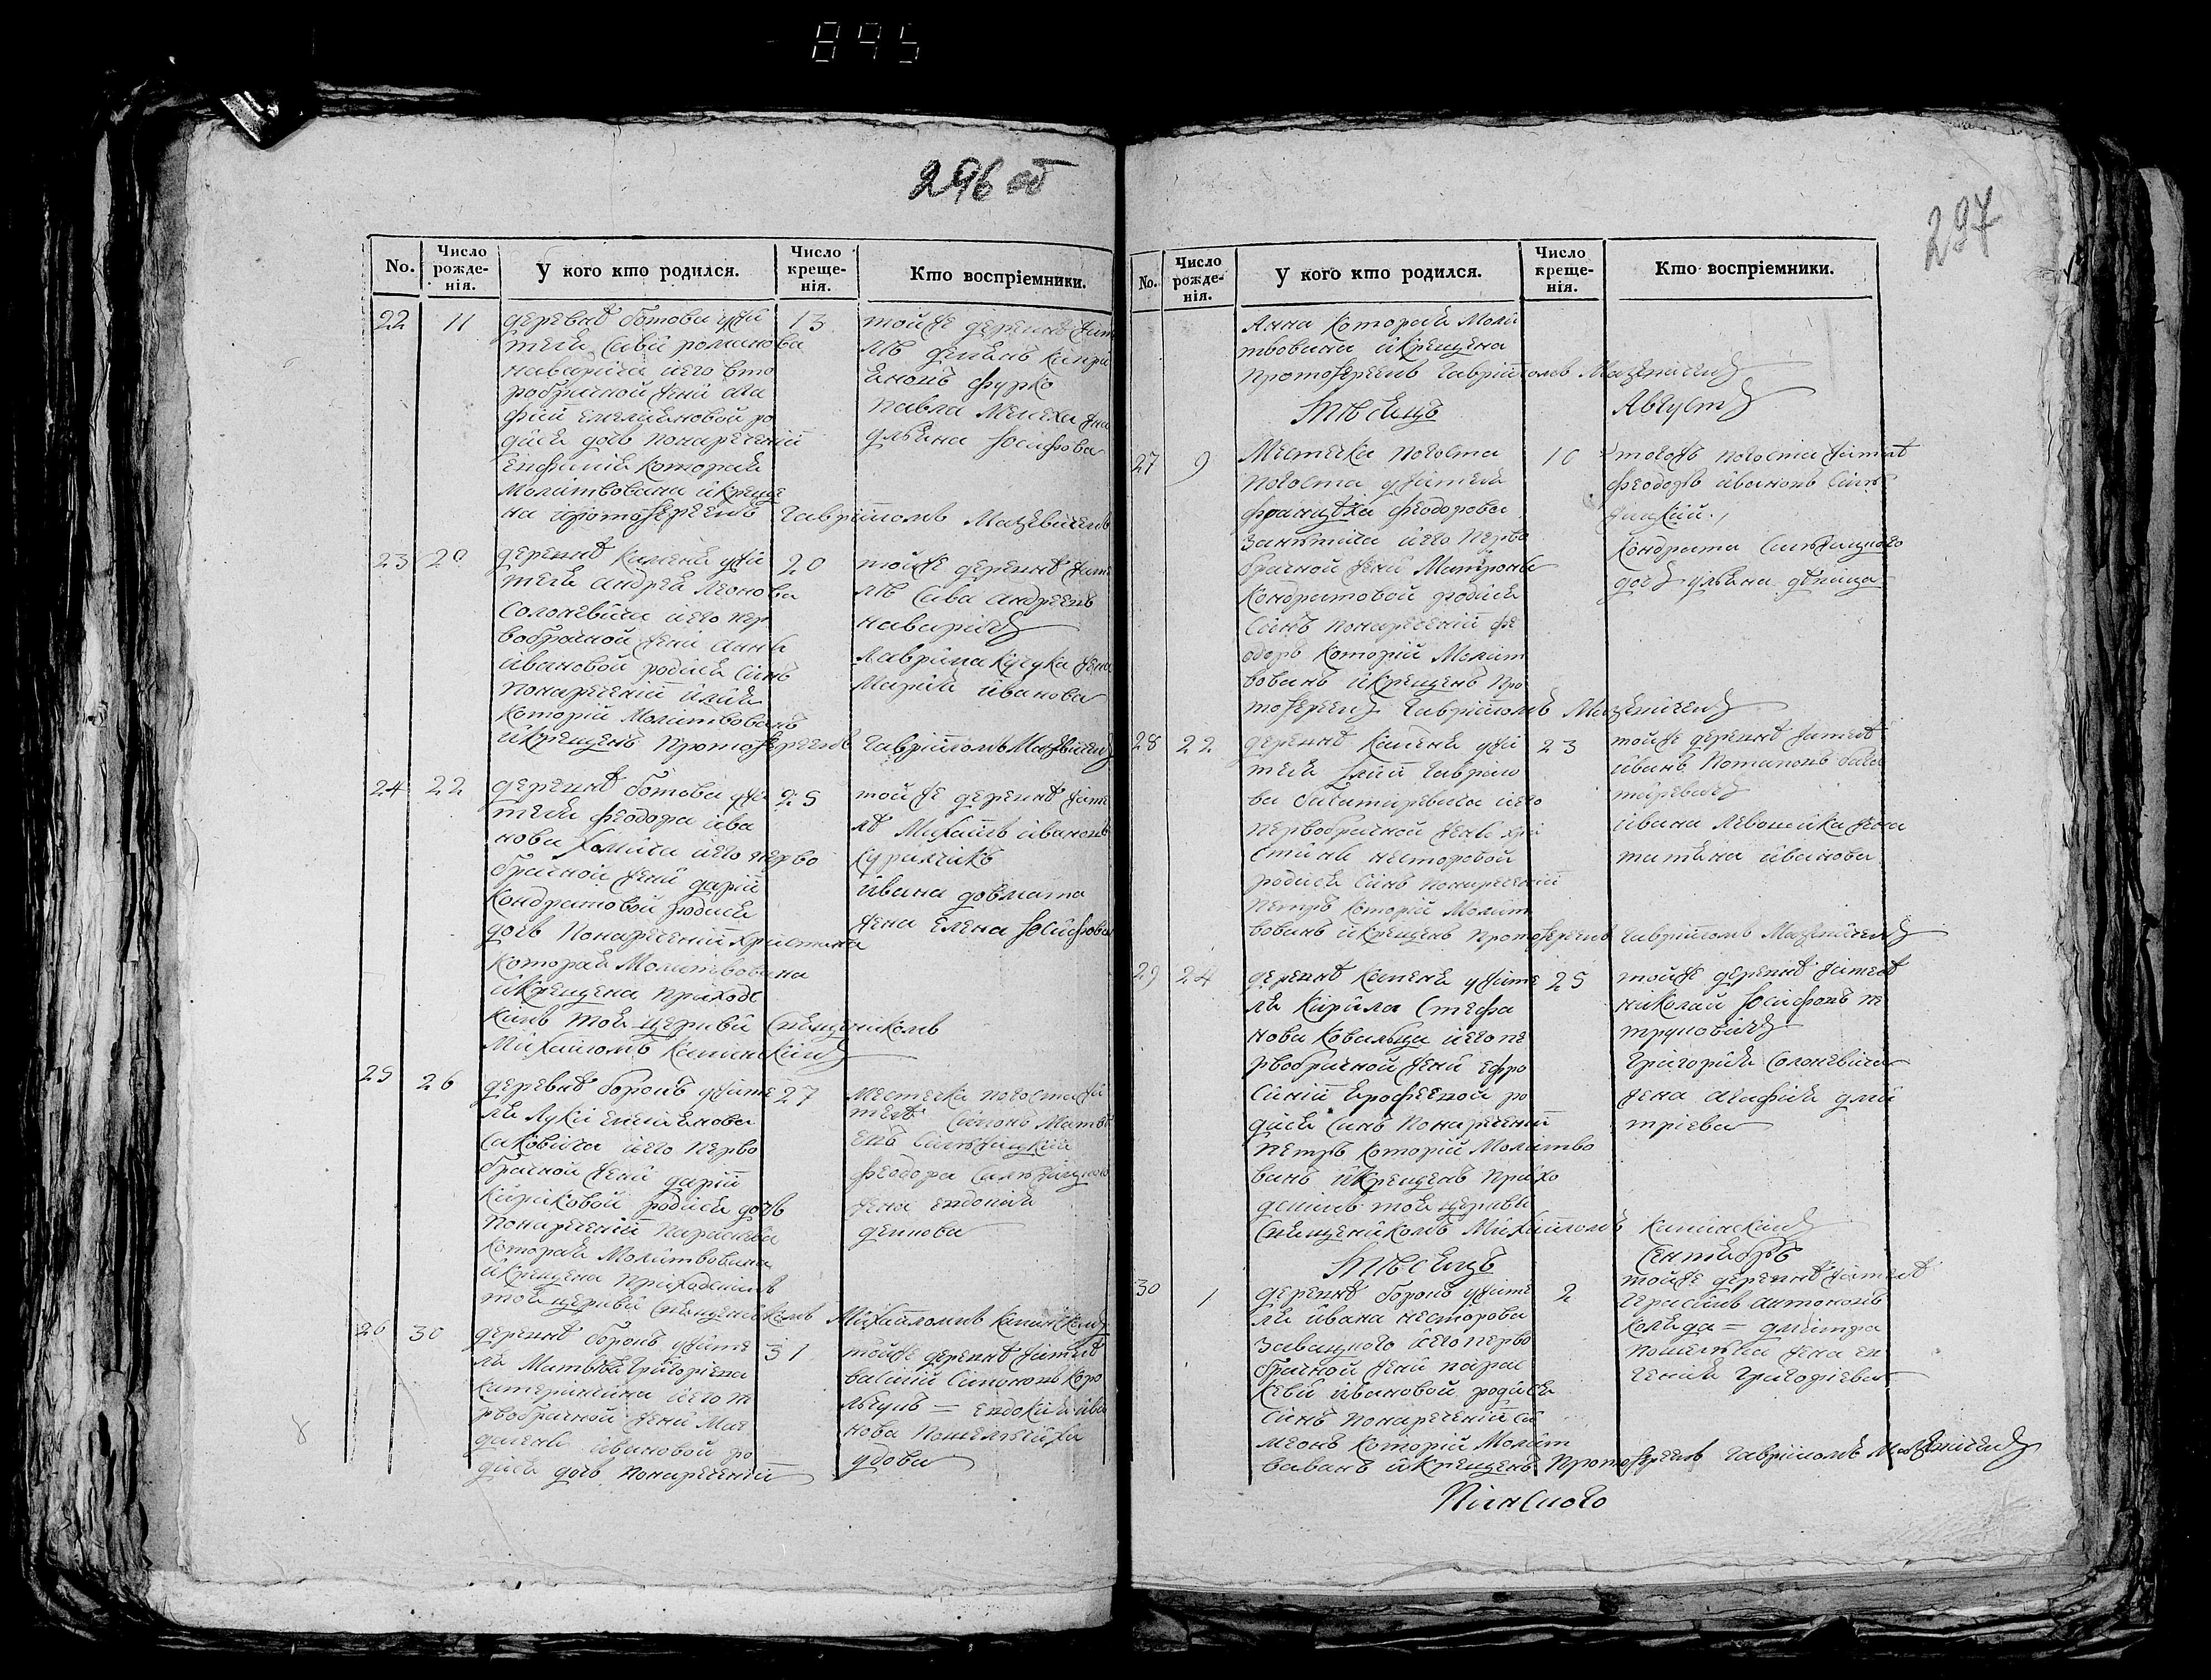 895
296 об
No.
Число рожде-нія.
У кого кто родился.
Число креще-нія.
Кто воспріемники.
22
11
деревнѣ ботова ужи
теля Савы романова
наварича иего вто
робрачной жени ага
фіи Емелияновой ро
дися дочь понареченій
Ефимия которая
Молитвована икреще
на протоіереемъ Гавріиломъ Мацевичемъ
13
тойже деревнѣ жите
ль
Павла Мелеха жена
улияна Іосифова
23
20
деревнѣ каменя ужи
теля андрея Леонова
Солоневича иего пер
вобрачной жени анни
Ивановой родися Синъ
понареченій илия
которій Молитвованъ
икрещенъ протоіереемъ Гавріиломъ Мацевичемъ
20
тойже деревнѣ жите
ль Сава андреевъ
наваричъ
лаврина жена
Мария иванова
24
22
деревнѣ ботова ужи
теля феодора ива
нова хомича иего перво
брачной жени даріи
Кондратовой родися
дочь понареченій христина
которая Молитвована
икрещена приходс
кимъ тоя церкви Священикомъ
Михаиломъ Каминскимъ
25
тойже деревнѣ жите
ль Михаилъ ивановъ
ивана довмата
жена Елена Іосифова
25
26
деревнѣ боронъ ужите
ля Луки Емилиянова
Саковича иего перво
брачной жени даріи
Кириковой родися дочь
понареченій параскева
которая Молитвована
икрещена приходскимъ
тоя церкви Священикомъ Михаиломъ Каминскимъ
27
Местечка погоста жи
тель Симонъ Матве
евъ
феодора
жена Евдокия
26
30
деревнѣ боронъ ужите
ля Матвея Григоріева
катеринича иего пе
рвобрачной жени Маг
далени ивановой ро
дися дочь понареченій
31
тойже деревнѣ жител
василій Симоновъ Коро
Евдокия ива
нова
удова
297
No.
Число рожде-нія.
У кого кто родился.
Число креще-нія.
Кто воспріемники.
Анна которая Моли
твована икрещена
протоіереемъ Гавріиломъ Мацевичемъ
Мѣсяцъ Августъ
27
9
Местечка погоста
погоста ужителя
феодорова
иего перво
брачной жени Матрони
Кондратовой родися
Синъ понареченій фе
одоръ которій Молит
вованъ икрещенъ про
тоіереемъ Гавріиломъ Мацевичемъ
10
тогожъ погоста жител
феодоръ ивановъ
Кондрата
дочъ улияна девица
28
22
деревнѣ каменя ужи
теля Іліи Гаврило
ва богатиревича иего
первобрачной жени хри
стини несторовой
родися Синъ понареченій
петръ которій Молит
вованъ икрещенъ протоіереемъ Гавріиломъ Мацевичемъ
23
тойже деревнѣ жител
иванъ потаповъ бога
тиревичъ
ивана Левошика жена
татияна иванова
29
24
деревнѣ каменя ужите
ля Кирила Стефа
нова Ковальца иего пе
рвобрачной жени Ефро
синіи Ерофеевой ро
дися Синъ понареченій
петръ которій Молитво
ванъ икрещенъ прихо
дскимъ тоя церкви
Священикомъ Михаиломъ Каминскимъ
25
тойже деревнѣ жител
николай Іосифовъ пе
труковичъ
Григория Солоневича
жена агафия дми
тріева
Мѣсяцъ Сентябръ
30
1
деревнѣ боронъ ужите
ля ивана несторова
завацкого иего перво
брачной жени парас
кеви ивановой родися
Синъ понареченій Си
меонъ которій Молит
вованъ икрещенъ протоіереемъ Гавріиломъ Мацевичемъ
2
тойже деревнѣ жител
Герасимъ антоновъ
коляда = дмитра
жена ев
гения Григоріева
Пинского